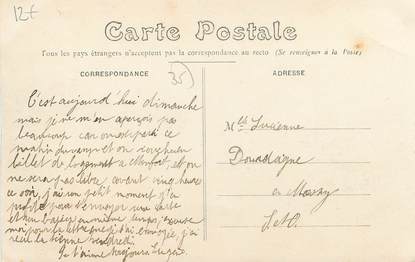 12€
Carte Postale
Tous les pays étrangers n'acceptent pas la correspondance au recto (Se renseigner à la Poste)
CORRESPONDANCE
35
ADRESSE
C'est aujourd'hui dimanche
mais je ne m'en aperçois pas
beaucoup car on est
matin et on
billet de logement a et on
ne sera pas libre avant cinq heures
ce soir, j'ai un petit moment j'en
profite pour t'envoyer une carte
et un baiser en même temps, excuse
moi pour la que je t'ai envoyée, j'ai
reçu la tienne vendredi
Je t'aime toujours Eugène
Mlle Lucienne
en
S et O.